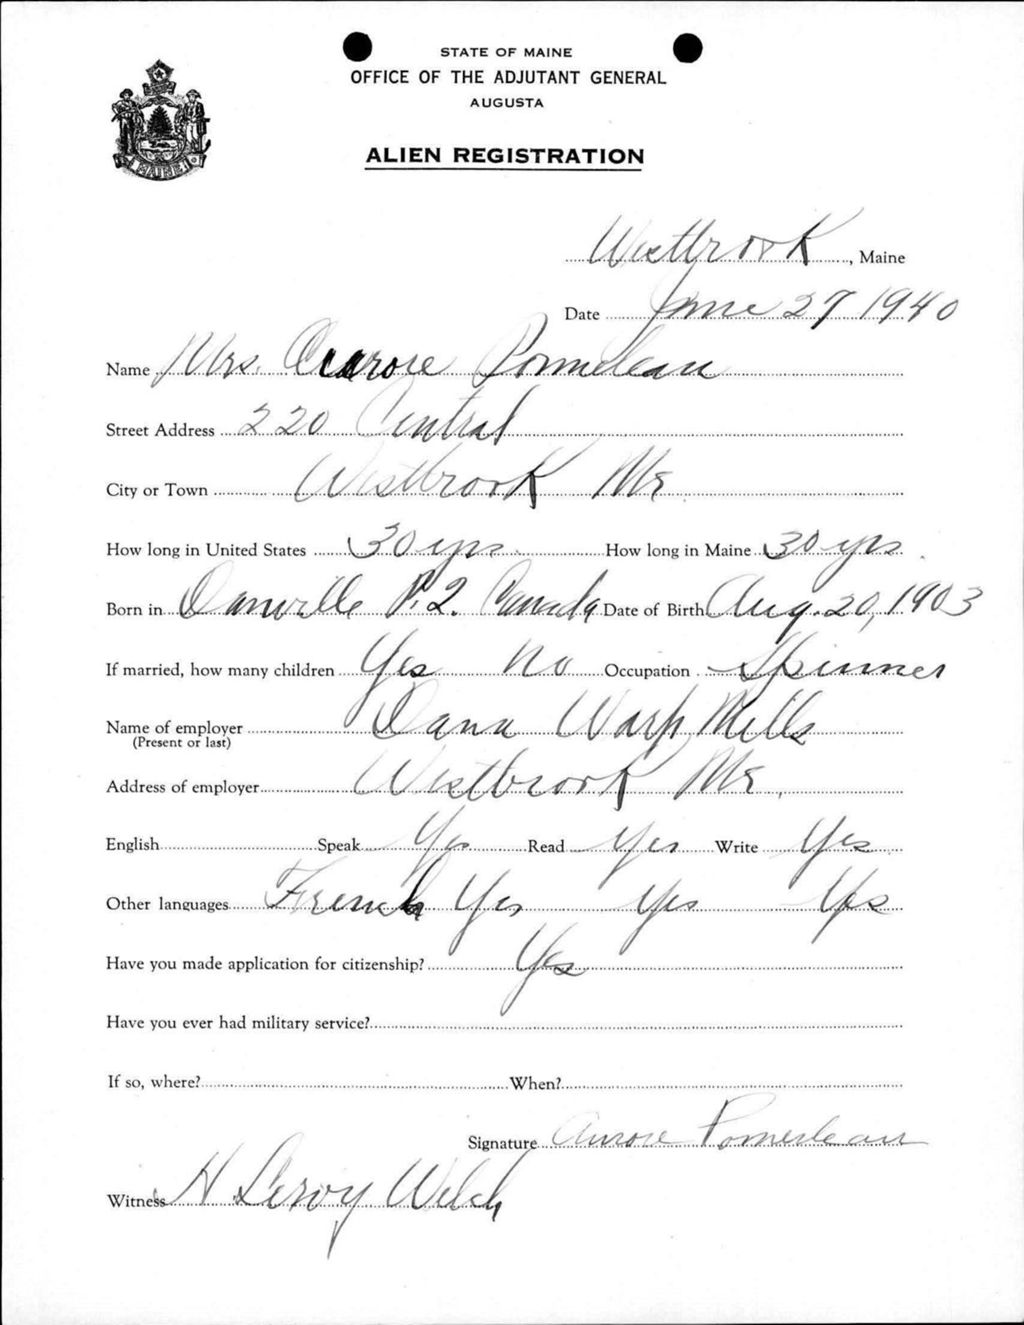 STATE OF MAINE
OFFICE OF THE ADJUTANT GENERAL
AUGUSTA
ALIEN REGISTRATION
MAINE
Westbrook, Maine
Date June 27 1940
Name Mrs. Aurore Pomeleau
Street Address 220 Central
City or Town Westbrook Me
How long in United States 30 yrs. How long in Maine 30 yrs.
Born in Danville P.Q. Canada Date of Birth Aug. 20, 1903
If married, how many children Yes No Occupation Spinner
Name of employer Dana Warp Mills
(Present or last)
Address of employer Westbrook Me.
English Speak Yes Read Yes Write Yes
Other languages French Yes Yes Yes
Have you made application for citizenship? Yes
Have you ever had military service?
If so, where? When?
Signature Aurore Pomerleau
Witness H Leroy Welch